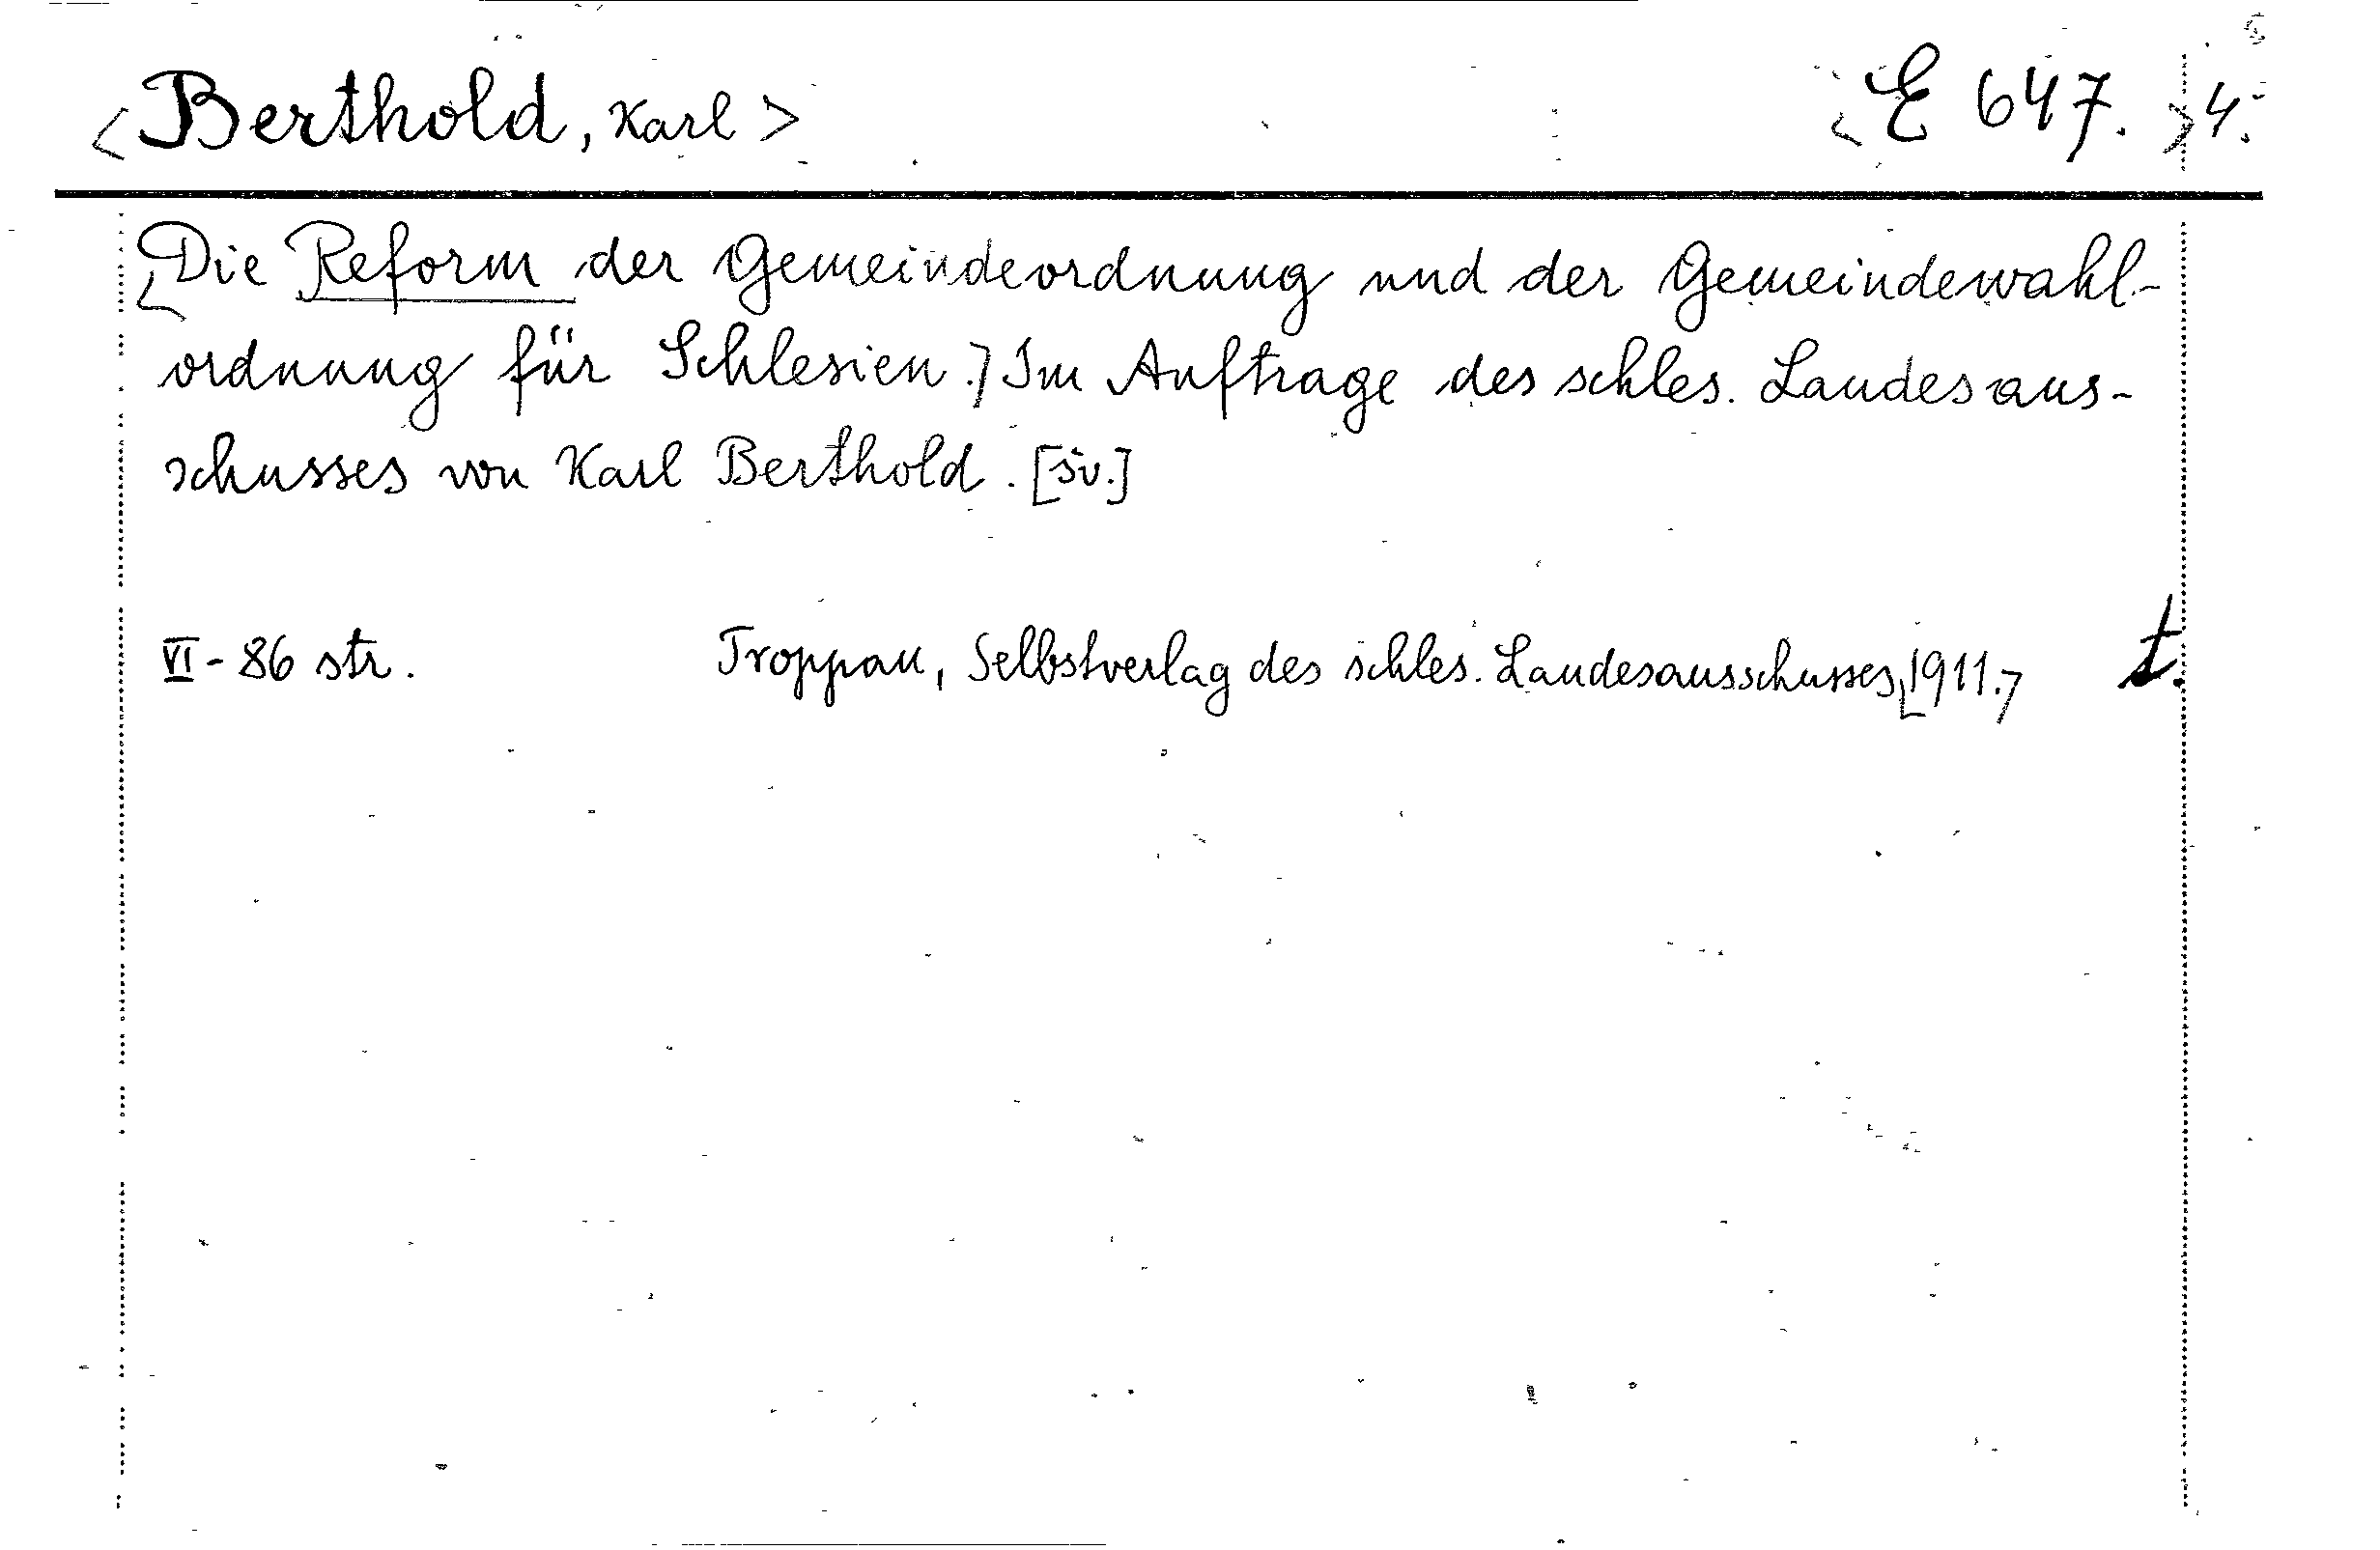 <Berthold, Karl> <E 647.> 4.
[Die Reform der Gemeindeordnung und der Gemeindewahl-
ordnung für Schlesien.] Im Auftrage des schles. Landesaus-
schusses von Karl Berthold. [sv.]
VI - 86 str. Troppau, Selbstverlag des schles. Landesausschusses, [1911.] t.